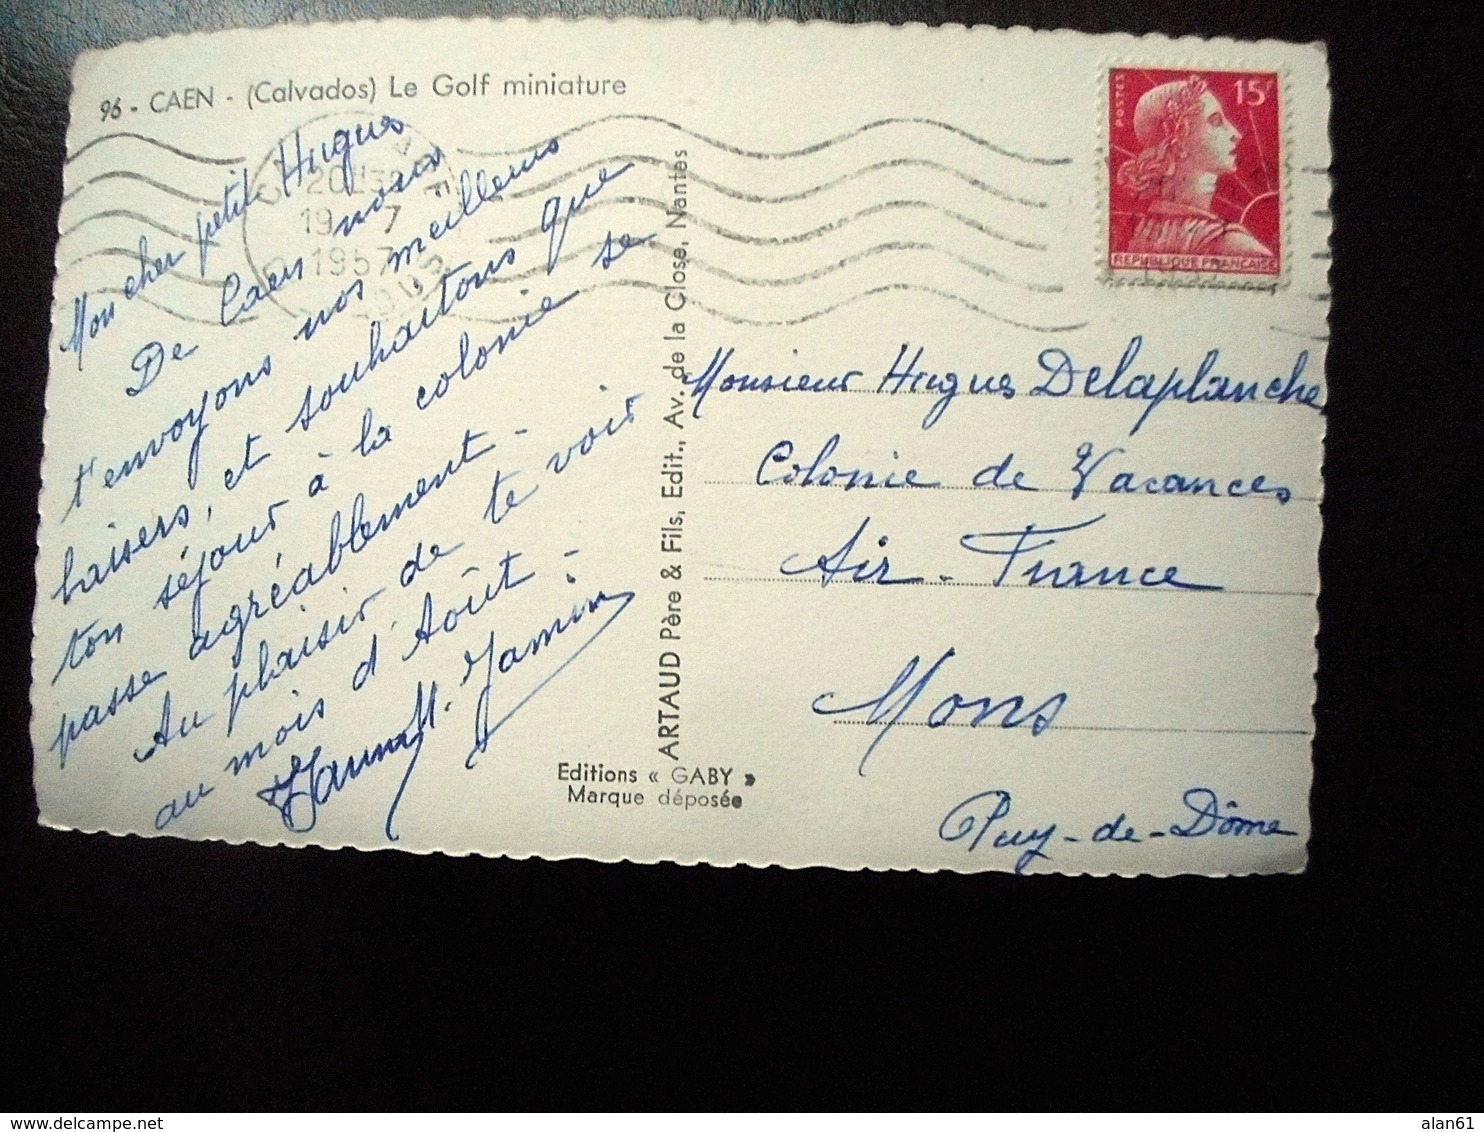 96 - CAEN - (Calvados) Le Golf miniature
Mon cher petit Hugues
De Caen nous
t'envoyons nos meilleurs
baisers, et souhaitons que
ton séjour à la colonie se
passe agréablement -
Au plaisir de te voir
au mois d'Août -
M. Jamin
20H30
19 - 7
1957
ARTAUD Père & Fils, Edit., Av. de la Close, Nantes
Editions « GABY »
Marque déposée
POSTES
15F
REPUBLIQUE FRANCAISE
Monsieur Hugues Delaplanche
Colonie de Vacances
Air - France
Mons
Puy-de-Dôme
delcampe.net
alan61